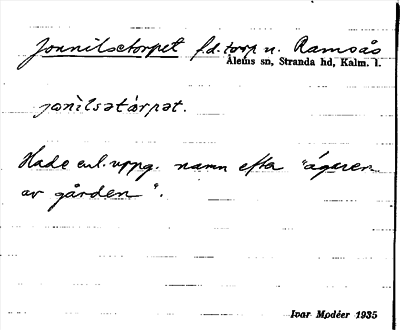 Jonnilsetorpet f.d. torp u. Ramsås
Ålems sn, Stranda hd, Kalm. l.
jonìlsətárpət.
Hade enl. uppg. namn efter "ägaren
av gården".
Ivar Modéer 1935